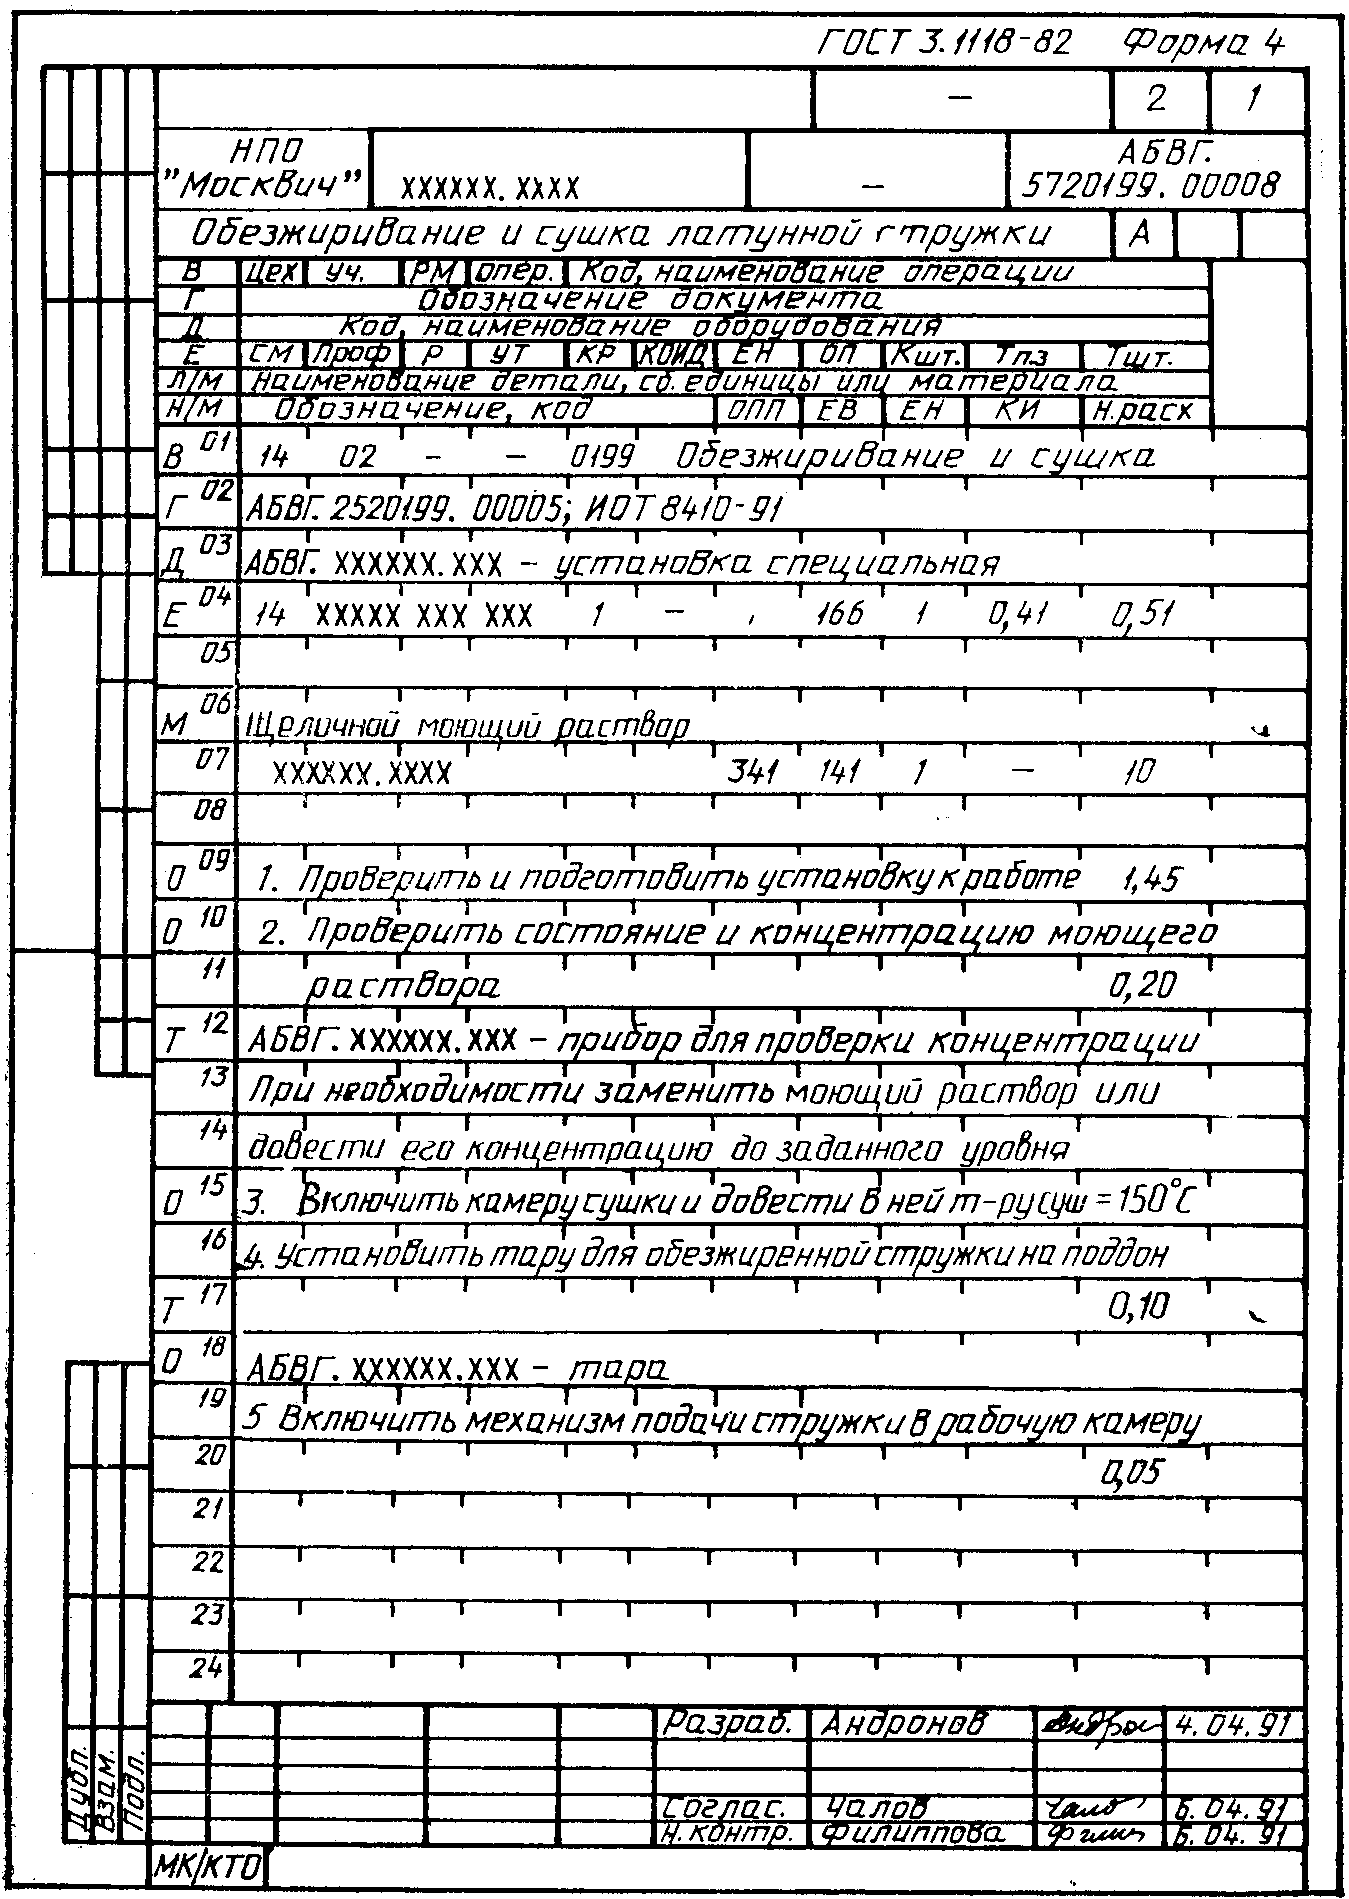 ГОСТ 3.1118-82 Форма 4
– 2 1
НПО "Москвич" XXXXXX.XXXX – АБВГ. 5720199.00008
Обезжиривание и сушка латунной стружки А
В Цех Уч. РМ Опер. Код, наименование операции
Г Обозначение документа
Д Код, наименование оборудования
Е СМ Проф Р УТ КР КОИД ЕН ОП Кшт. Тпз Тшт.
Л/М Наименование детали, сб. единицы или материала
Н/М Обозначение, код ОПП ЕВ ЕН КИ Н.расх
В 01 14 02 – – 0199 Обезжиривание и сушка
Г 02 АБВГ. 2520199. 00005; ИОТ 8410-91
Д 03 АБВГ. XXXXXX.XXX – установка специальная
Е 04 14 XXXXX XXX XXX 1 – 166 1 0,41 0,51
05
М 06 Щеличной моющий раствор
07 XXXXXX.XXXX 341 141 1 – 10
08
О 09 1. Проверить и подготовить установку к работе 1,45
О 10 2. Проверить состояние и концентрацию моющего
11 раствора 0,20
Т 12 АБВГ. XXXXXX.XXX – прибор для проверки концентрации
13 При необходимости заменить моющий раствор или
14 довести его концентрацию до заданного уровня
О 15 3. Включить камеру сушки и довести в ней т-ру суш = 150°С
16 4. Установить тару для обезжиренной стружки на поддон
Т 17 0,10
О 18 АБВГ. XXXXXX.XXX – тара
19 5 Включить механизм подачи стружки в рабочую камеру
20 0,05
21
22
23
24
Разраб. Андронов Андрон 4.04.91
Соглас. Чалов Чалов 6.04.91
Н.контр. Филиппова 6.04.91
Дубл.
Взам.
Подл.
МК/КТО